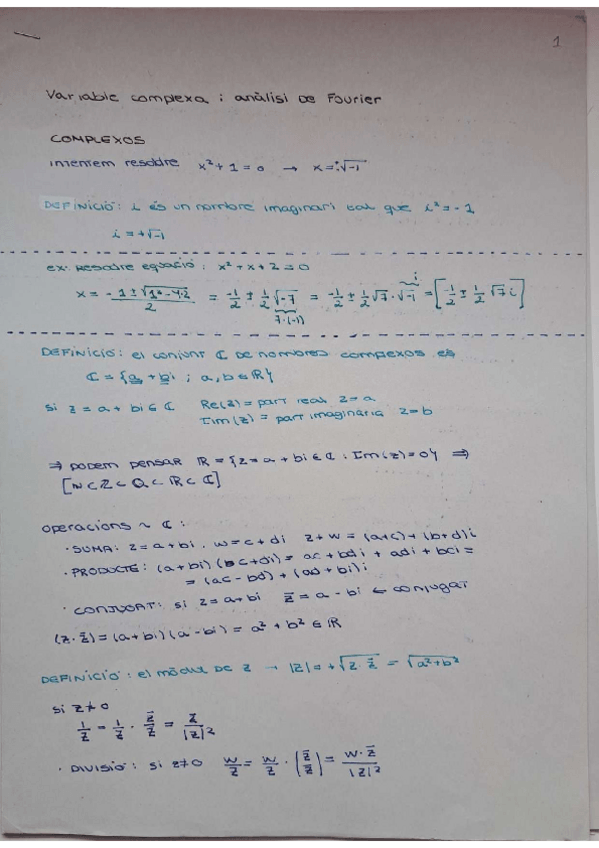 1
Variable complexa i anàlisi de Fourier
COMPLEXOS
intentem resoldre x² + 1 = 0 → x = ±√-1
DEFINICIÓ: i és un nombre imaginari tal que i² = -1
i = +√-1
ex: Resoldre equació: x² + x + 2 = 0
x = (-1 ± √(1² - 4·2))/2 = -1/2 ± 1/2 √-7 = -1/2 ± 1/2 √7 · √-1 = [-1/2 ± 1/2 √7 i]
7·(-1) i
DEFINICIÓ: el conjunt ℂ de nombres compexos és
ℂ = {a + bi ; a, b ∈ ℝ}
si z = a + bi ∈ ℂ Re(z) = part real z = a
Im(z) = part imaginària z = b
⇒ podem pensar ℝ = {z = a + bi ∈ ℂ : Im(z) = 0} ⇒
[ℕ ⊂ ℤ ⊂ ℚ ⊂ ℝ ⊂ ℂ]
operacions ~ ℂ :
· SUMA: z = a + bi , w = c + di z + w = (a+c) + (b+d)i
· PRODUCTE: (a + bi) (c + di) = ac + bdi + adi + bci =
= (ac - bd) + (ad + bi)i
· CONJUGAT: si z = a + bi z̄ = a - bi ← conjugat
(z · z̄) = (a + bi) (a - bi) = a² + b² ∈ ℝ
DEFINICIÓ: el mòdul de z → |z| = +√(z · z̄) = √(a² + b²)
si z ≠ 0
1/z = 1/z · z̄/z̄ = z̄/|z|²
· DIVISIÓ: si z ≠ 0 w/z = w/z · (z̄/z̄) = w · z̄/|z|²